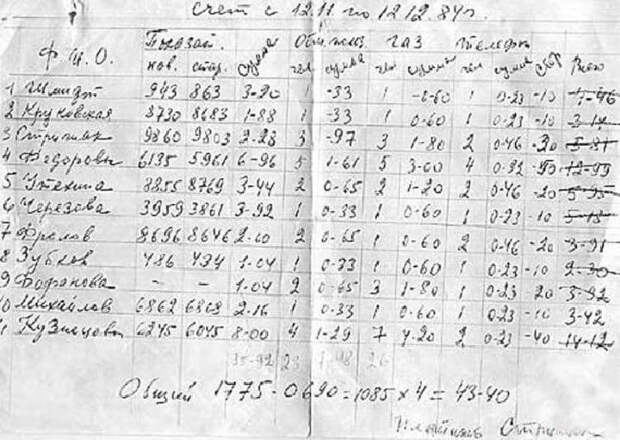 Счет с 12.11 по 12.12.84г.
Показат. Общ. польз. газ телефон
Ф. И. О. нов. стар. сумма чел сумма чел сумма чел сумма Всего
1 Шмидт 943 863 3-20 1 -33 1 -0-60 1 0-23 -10 4-46
2 Круковская 8730 8683 1-88 1 -33 1 0-60 1 0-23 -10 3-14
3 9860 9803 2-28 3 -97 3 1-80 2 0-46 -20
4 Федоровы 6135 5961 6-96 5 1-61 5 3-00 4 0-92 12-99
5 Утехина 8855 8769 3-44 2 0-65 2 1-20 2 0-46 -20 5-95
6 Черезова 3959 3861 3-92 1 0-33 1 0-60 1 0-23 -10 5-18
7 Фролов 8696 8646 2-00 2 0-65 1 0-60 2 0-46 -20 3-91
8 Зубков 486 434 1-04 1 0-33 1 0-60 1 0-23 -10 2-30
9 - - 1-04 2 0-65 3 1-80 1 0-23 20 3-92
10 Михайлов 6862 6808 2-16 1 0-33 1 0-60 1 0-23 -10 3-42
11 Кузнецовы 6245 6045 8-00 4 1-29 7 4-20 2 0-23 -40 14-12
35-92 23 26
Общий 1775-0690=1085×4=43-40